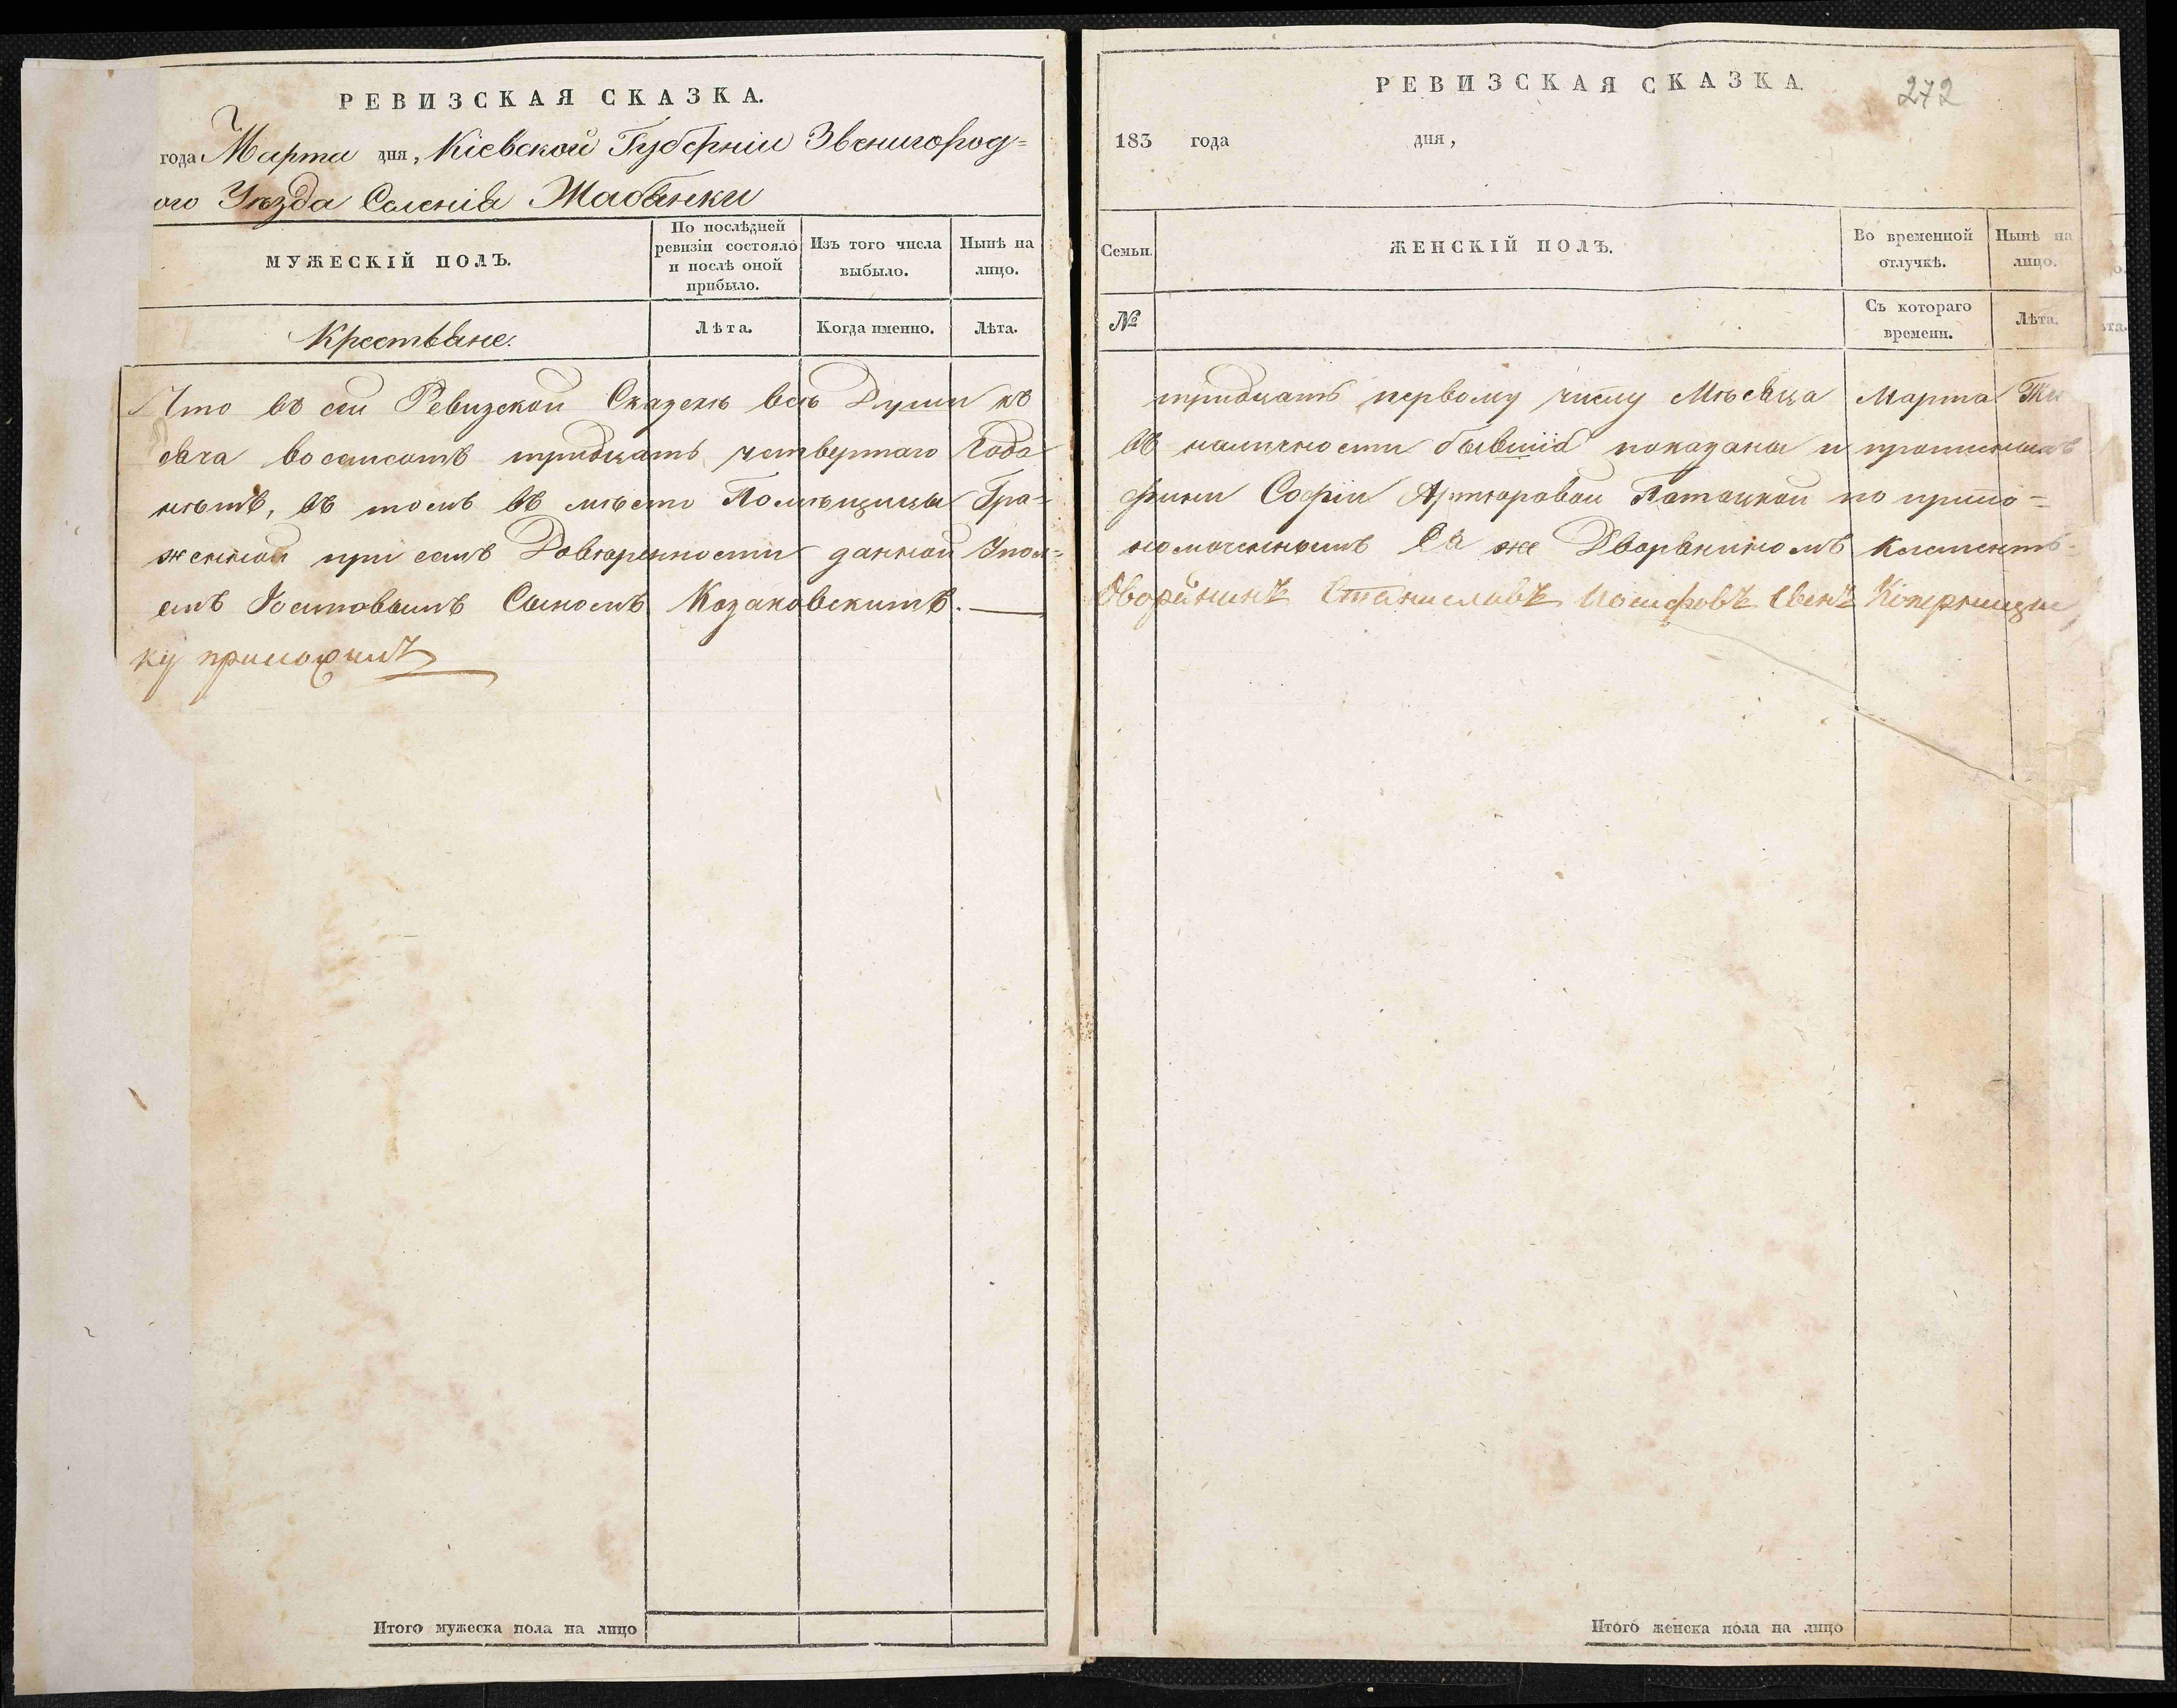 РЕВИЗСКАЯ СКАЗКА.
года Марта дня, Кіевской Губерніи Звенигород=
ого Уѣзда Селенія Жабянки
МУЖЕСКІЙ ПОЛЪ.
По послѣдней ревизіи состояло и послѣ оной прибыло.
Изъ того числа выбыло.
Нынѣ на лицо.
Крестьяне.
Лѣта.
Когда именно.
Лѣта.
Что въ сей Ревизской Сказскѣ всѣ Души къ
сяча восемсотъ тридцать четвертаго Года
нѣтъ, въ томъ въ мѣсто Помѣщицы Гра=
женной при семъ Довѣренности данной Упол=
емъ Іосиповымъ Сыномъ Козаковскимъ.
ку приложилъ
Итого мужеска пола на лицо
РЕВИЗСКАЯ СКАЗКА.
272
183 года дня,
Семьи.
ЖЕНСКІЙ ПОЛЪ.
Во временной отлучкѣ.
Нынѣ на лицо.
№
Съ котораго времени.
Лѣта.
тридцать первому числу Мѣсяца Марта
въ наличности бывшія показаны и прописныхъ
фини Софіи Артюровой Потоцкой по прило=
номоченнымъ Ея же Дворяниномъ Клементь=
Дворянинъ Станиславъ Іосифовъ Сынъ
Итого женска пола на лицо